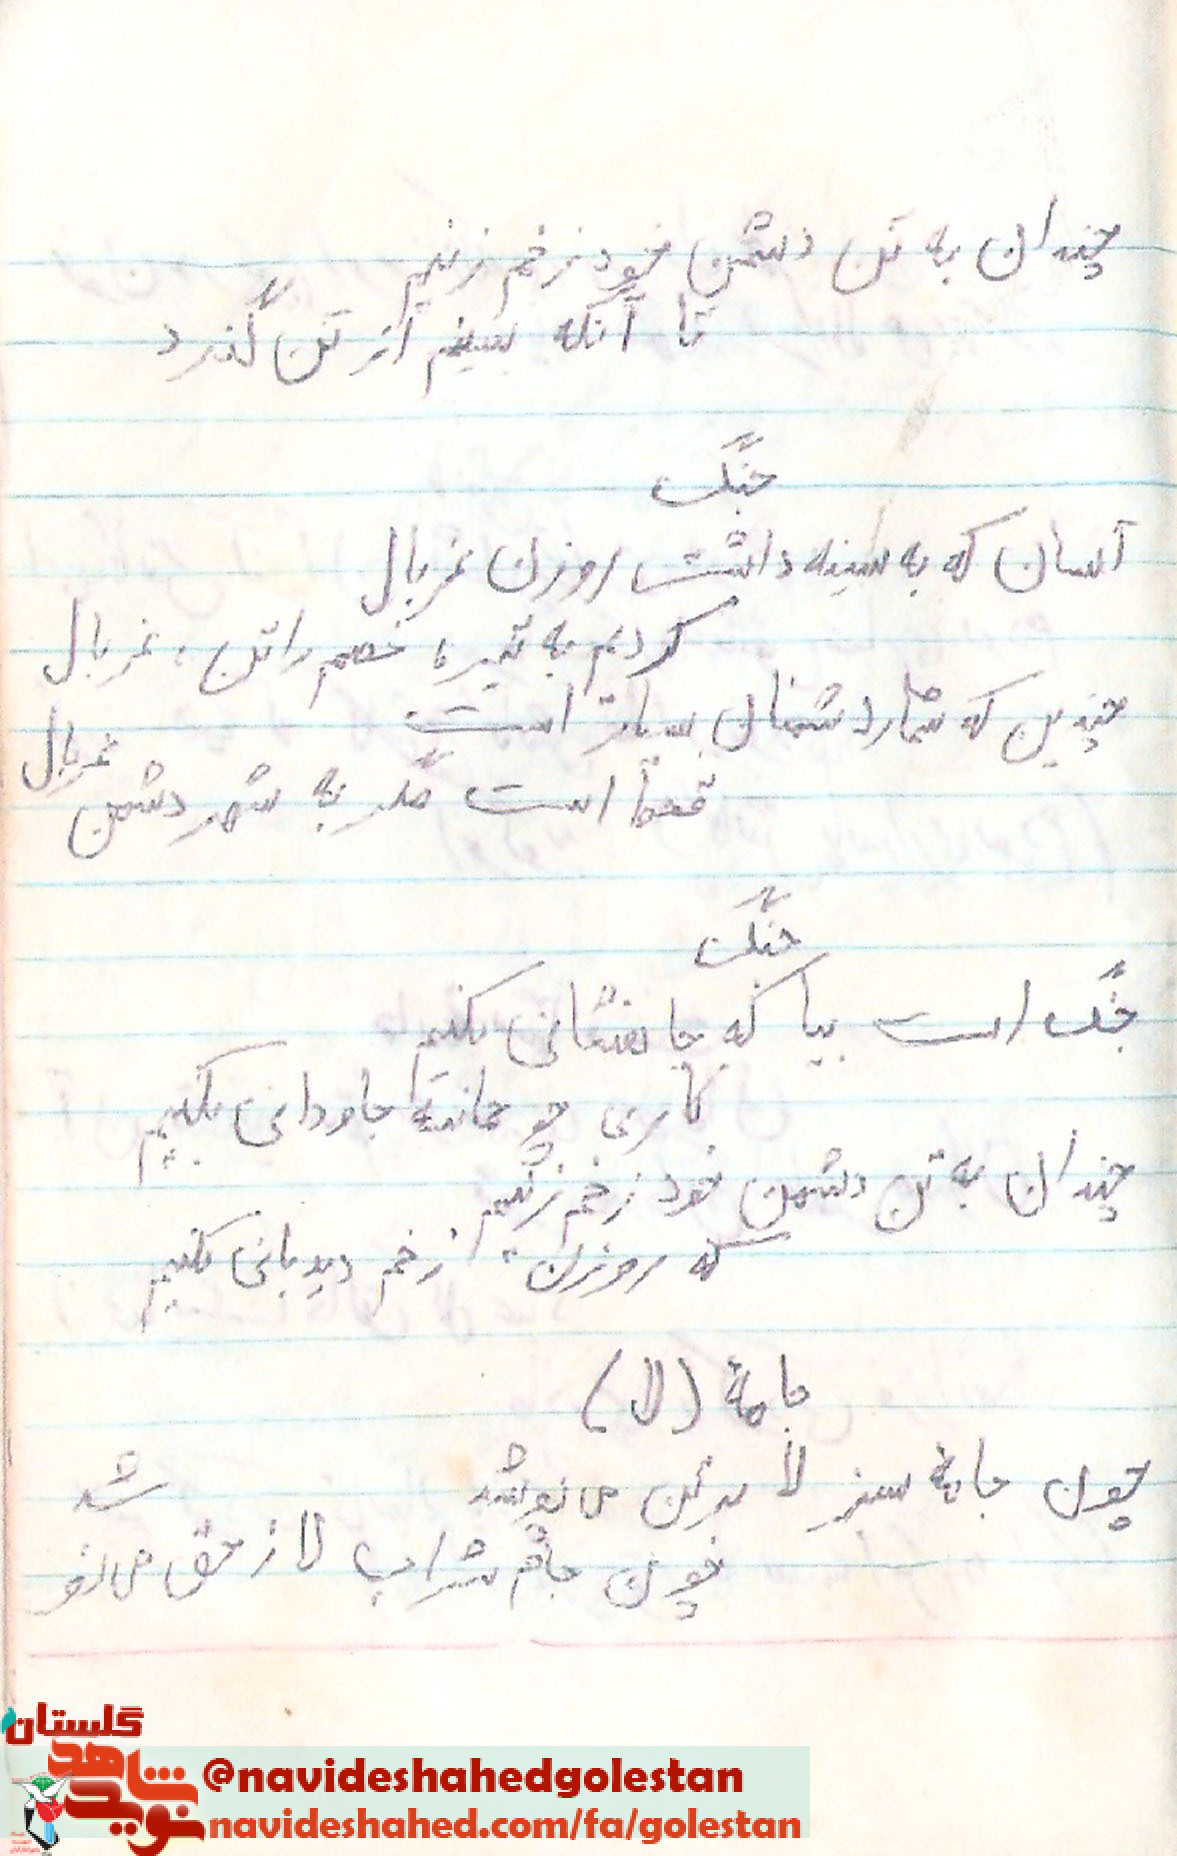 چندان به تن دشمن خود زخم زنیم
تا آنکه ببینیم از تن گذرد
جنگ
آسان که به سینه داشت روزن غربال
کردیم به تیر، خصم را تن، غربال
چندین که شمار دشمنان بسیار است
قحط است مگر به شهر دشمن غربال
جنگ
جنگ است بیا که جانفشانی بکنیم
کاری چو حماسهٔ جاودانی بکنیم
چندان به تن دشمن خود زخم زنیم
که روزن زخم دیدبانی بکنیم
جامهٔ (لا)
چون جامهٔ سبز لا به تن می‌نوشد
چون جام شراب لا ز حق می‌نوشد
گلستان
نوید شاهد
@navideshahedgolestan
navideshahed.com/fa/golestan